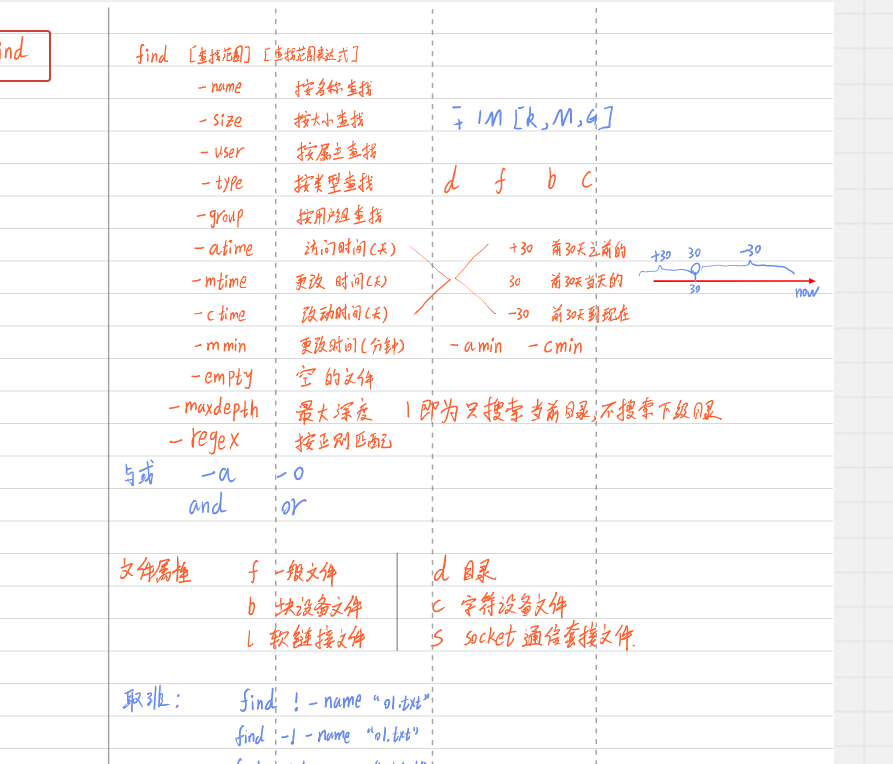 ind
find [查找范围] [查找范围表达式]
-name 按名称查找
-size 按大小查找 -+ 1M [k,M,G]
-user 按属主查找
-type 按类型查找 d f b c
-group 按用户组查找
-atime 访问时间(天) +30 前30天之前的 +30 30 -30
-mtime 更改时间(天) 30 前30天当天的 30 now
-ctime 改动时间(天) -30 前30天到现在
-mmin 更改时间(分钟) -amin -cmin
-empty 空的文件
-maxdepth 最大深度 1即为只搜索当前目录,不搜索下级目录
-regex 按正则匹配
与或 -a -o
and or
文件属性 f 一般文件 d 目录
b 块设备文件 c 字符设备文件
l 软链接文件 s socket通信套接文件.
取반:
find ! -name "01.txt"
find -! -name "01.txt"